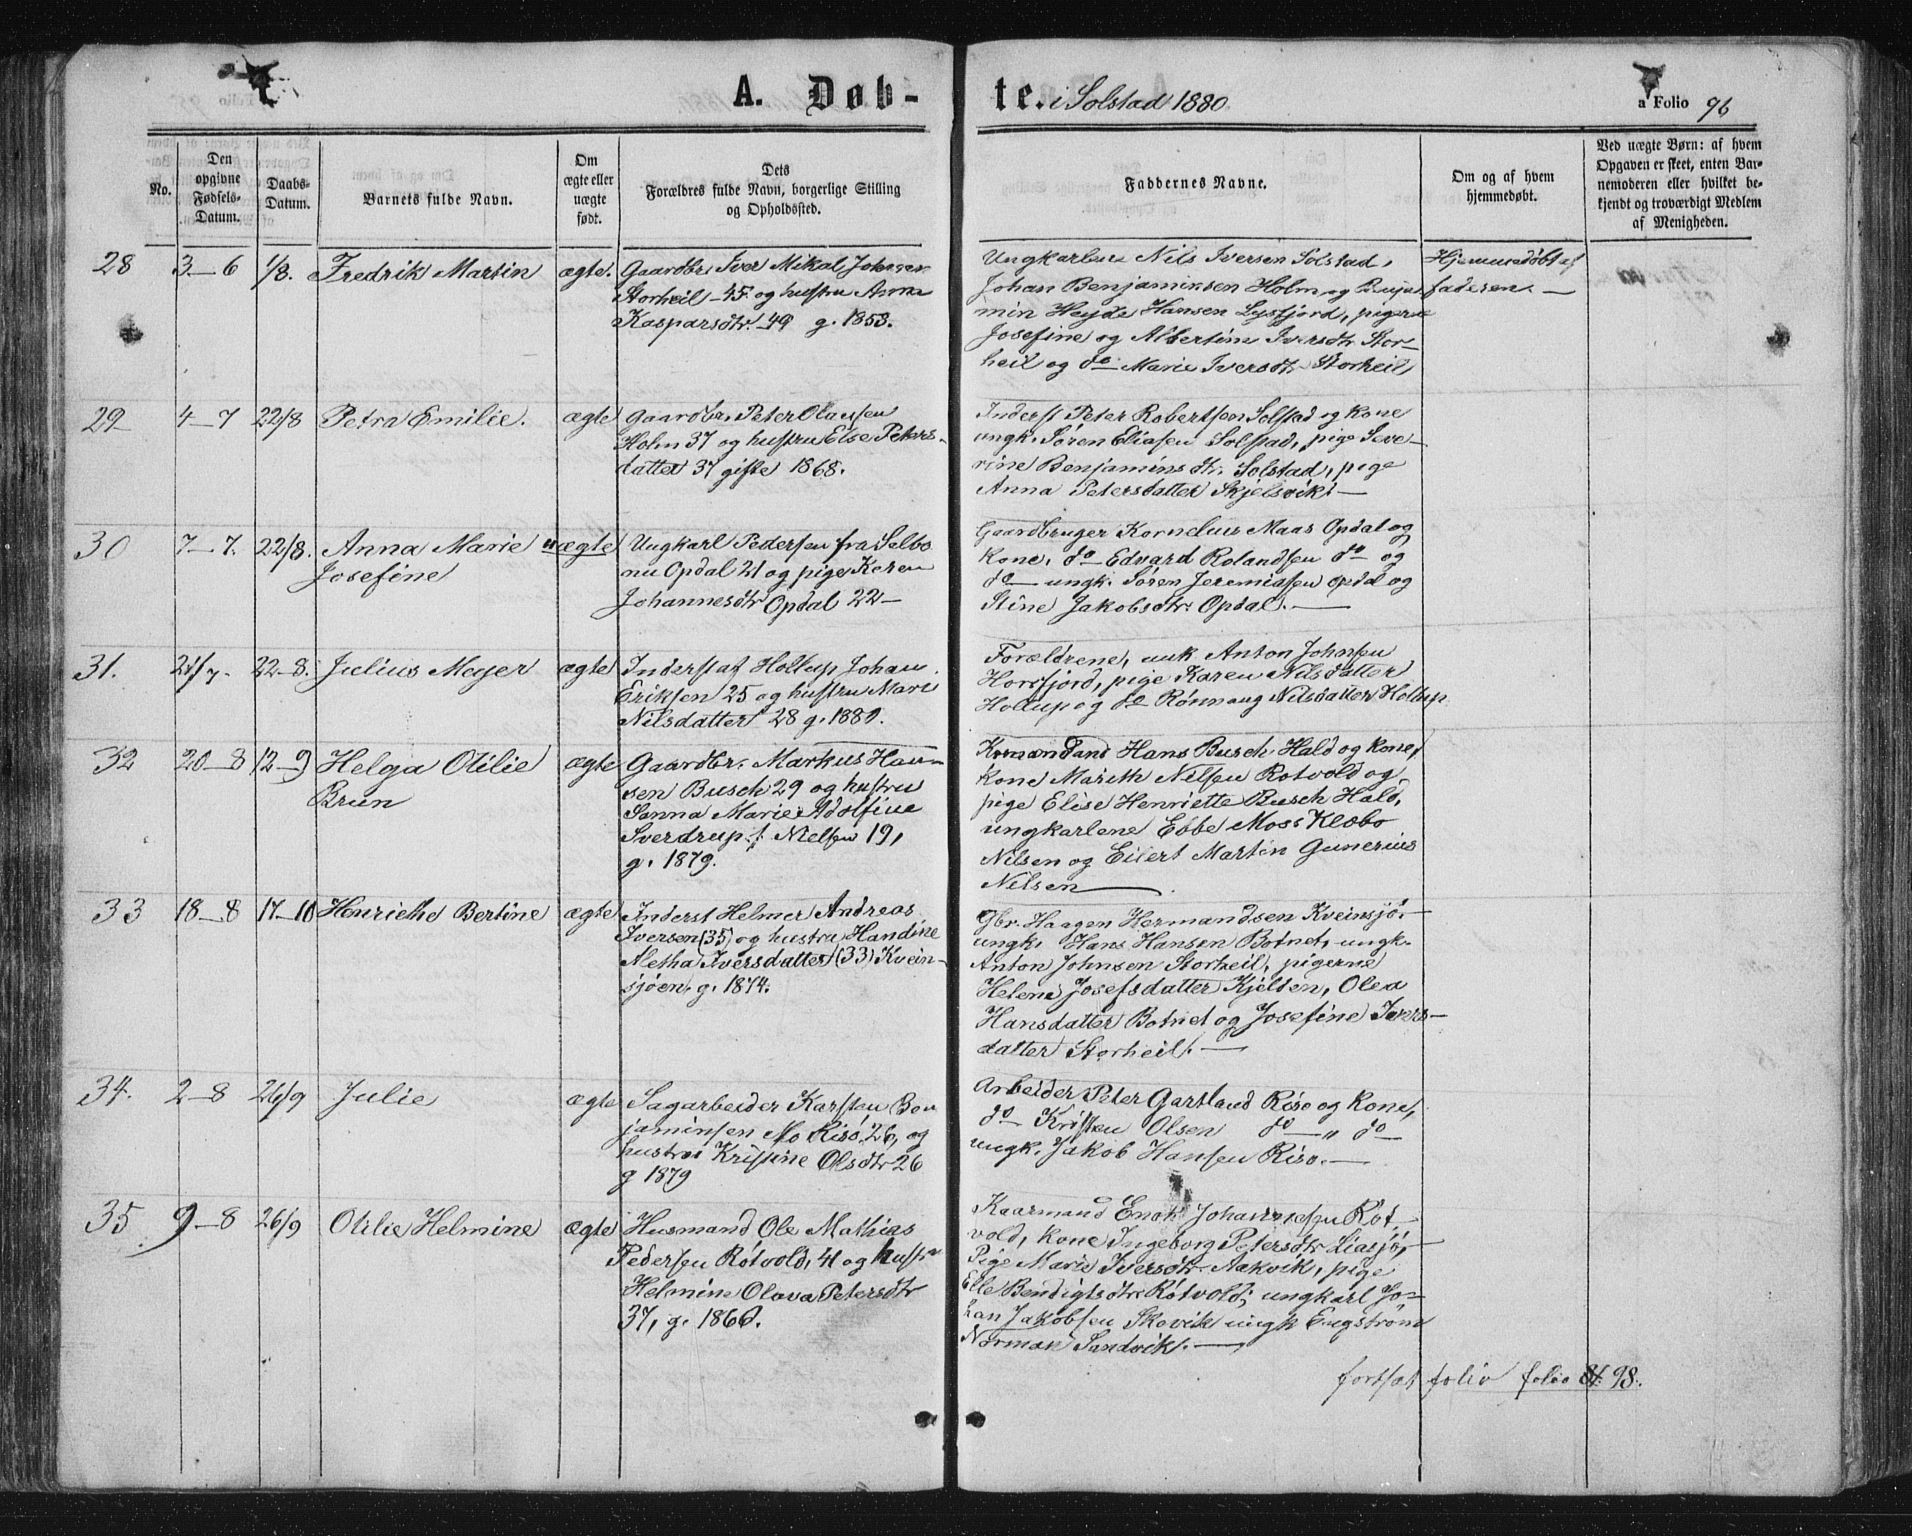 A. Døbte. i Solstad 1880
a Folio 96
No.
Den opgivne Fødsels-Datum.
Daabs-Datum.
Barnets fulde Navn.
Om ægte eller uægte født.
Dets Forældres fulde Navn, borgerlige Stilling og Opholdssted.
Faddernes Navne.
Om og af hvem hjemmedøbt.
Ved uægte Børn: af hvem Opgaven er skeet, enten Barnemoderen eller hvilket bekjendt og troværdigt Medlem af Menigheden.
28 3–6 1/8. Fredrik Martin ægte.
Gaardbr. Iver Mikal Johnsen
Storheil 45 og hustru Anna
Kasparsdtr. 49 g. 1853.
Ungkarlene Nils Iversen Solstad,
Johan Benjaminsen Holm og Benja
min Heyde Hansen Lysfjord, pigerne
Josefine og Albertine Iversdtr Stor-
heil og do Marie Iversdtr Storheil
Hjemmedøbt af
faderen. —
29 4–7 22/8 Petra Emilie. ægte
Gaardbr. Peter Olausen
Holm 37 og hustru Else Peters-
datter 37 gifte 1868.
Inderst Peter Robertsen Solstad og kone
ungk. Søren Eliasen Solstad, pige Seve-
rine Benjaminsdtr. Solstad, pige
Anna Petersdatter Skjelsvik. —
30 7–7. 22/8. Anna Marie uægte
Josefine
Ungkarl Pedersen fra Selbo
nu Opdal 21 og pige Karen
Johannesdtr Opdal 22 —
Gaardbruger Kornelius Maas Opdal og
Kone, do Edvard Rolandsen do og
do — ungk. Søren Jeremiassen Opdal og
Stine Jakobsdtr. Opdal. —
31. 21/7. 22–8. Julius Meyer ægte
Inderst af Hollup Johan
Eriksen 25 og hustru Mari
Nilsdatter 28 g. 1880.
Forældrene, unk Anton Johnsen
Horsfjord, pige Karen Nilsdatter
Hollup og do Rønnaug Nilsdatter Hollup
32 20–8 12–9 Helga Otilie ægte
Brun
Gaardbr. Markus Han-
sen Busch 29 og hustru
Sanna Marie Adolfine
Sverdrup f. Nielsen 19,
g. 1879.
Komandand Hans Busch Hald og kone,
Kone Mareth Nilsen Rotvold og
pige Elise Henriette Busch Hald,
ungkarlene Ebbe Moss Klæbo
Nilsen og Eilert Martin Gunerius
Nilsen —
33 18–8 17–10 Henriethe Bertine ægte
Inderst Helmer Andreas
Iversen (35) og hustru Handine
Aletha Iversdatter (33) Kvein-
sjøen. g. 1874.
Gbr. Haagen Hermandsen Kveinsjø. —
ungk. Hans Hansen Botnet, ungk.
Anton Johnsen Storheil, pigerne
Helene Josefsdatter Kjelden, Olea
Hansdatter Botnet og Josefine Ivers-
datter Storheil. —
34. 2–8 26/9 Julie ægte
Sagarbeider Karsten Ben
jaminsen Mo Risø. 26, og
hustru Kristine Olsdtr 26
g 1879
Arbeider Peter Gartland Risø og kone,
do Kristen Olsen do — „ do —
ungk. Jakob Hansen Risø. —
35 9–8 26/9 Otilie Helmine ægte
Husmand Ole Mathias
Pedersen Røtvold, 41 og hustr
Helmine Olava Petersdtr
37, g. 1866.
Kaarmand Enok Johannesen Røt-
vold, kone Ingeborg Petersdtr Liasjø, —
Pige Marie Iversdtr Aakvik, pige
Elle Bendigtsdtr Røtvold; ungkarl Jo-
han Jakobsen Skovik ungk Engstrøm
Norman Sandvik. —
fortsat folio folio 98.